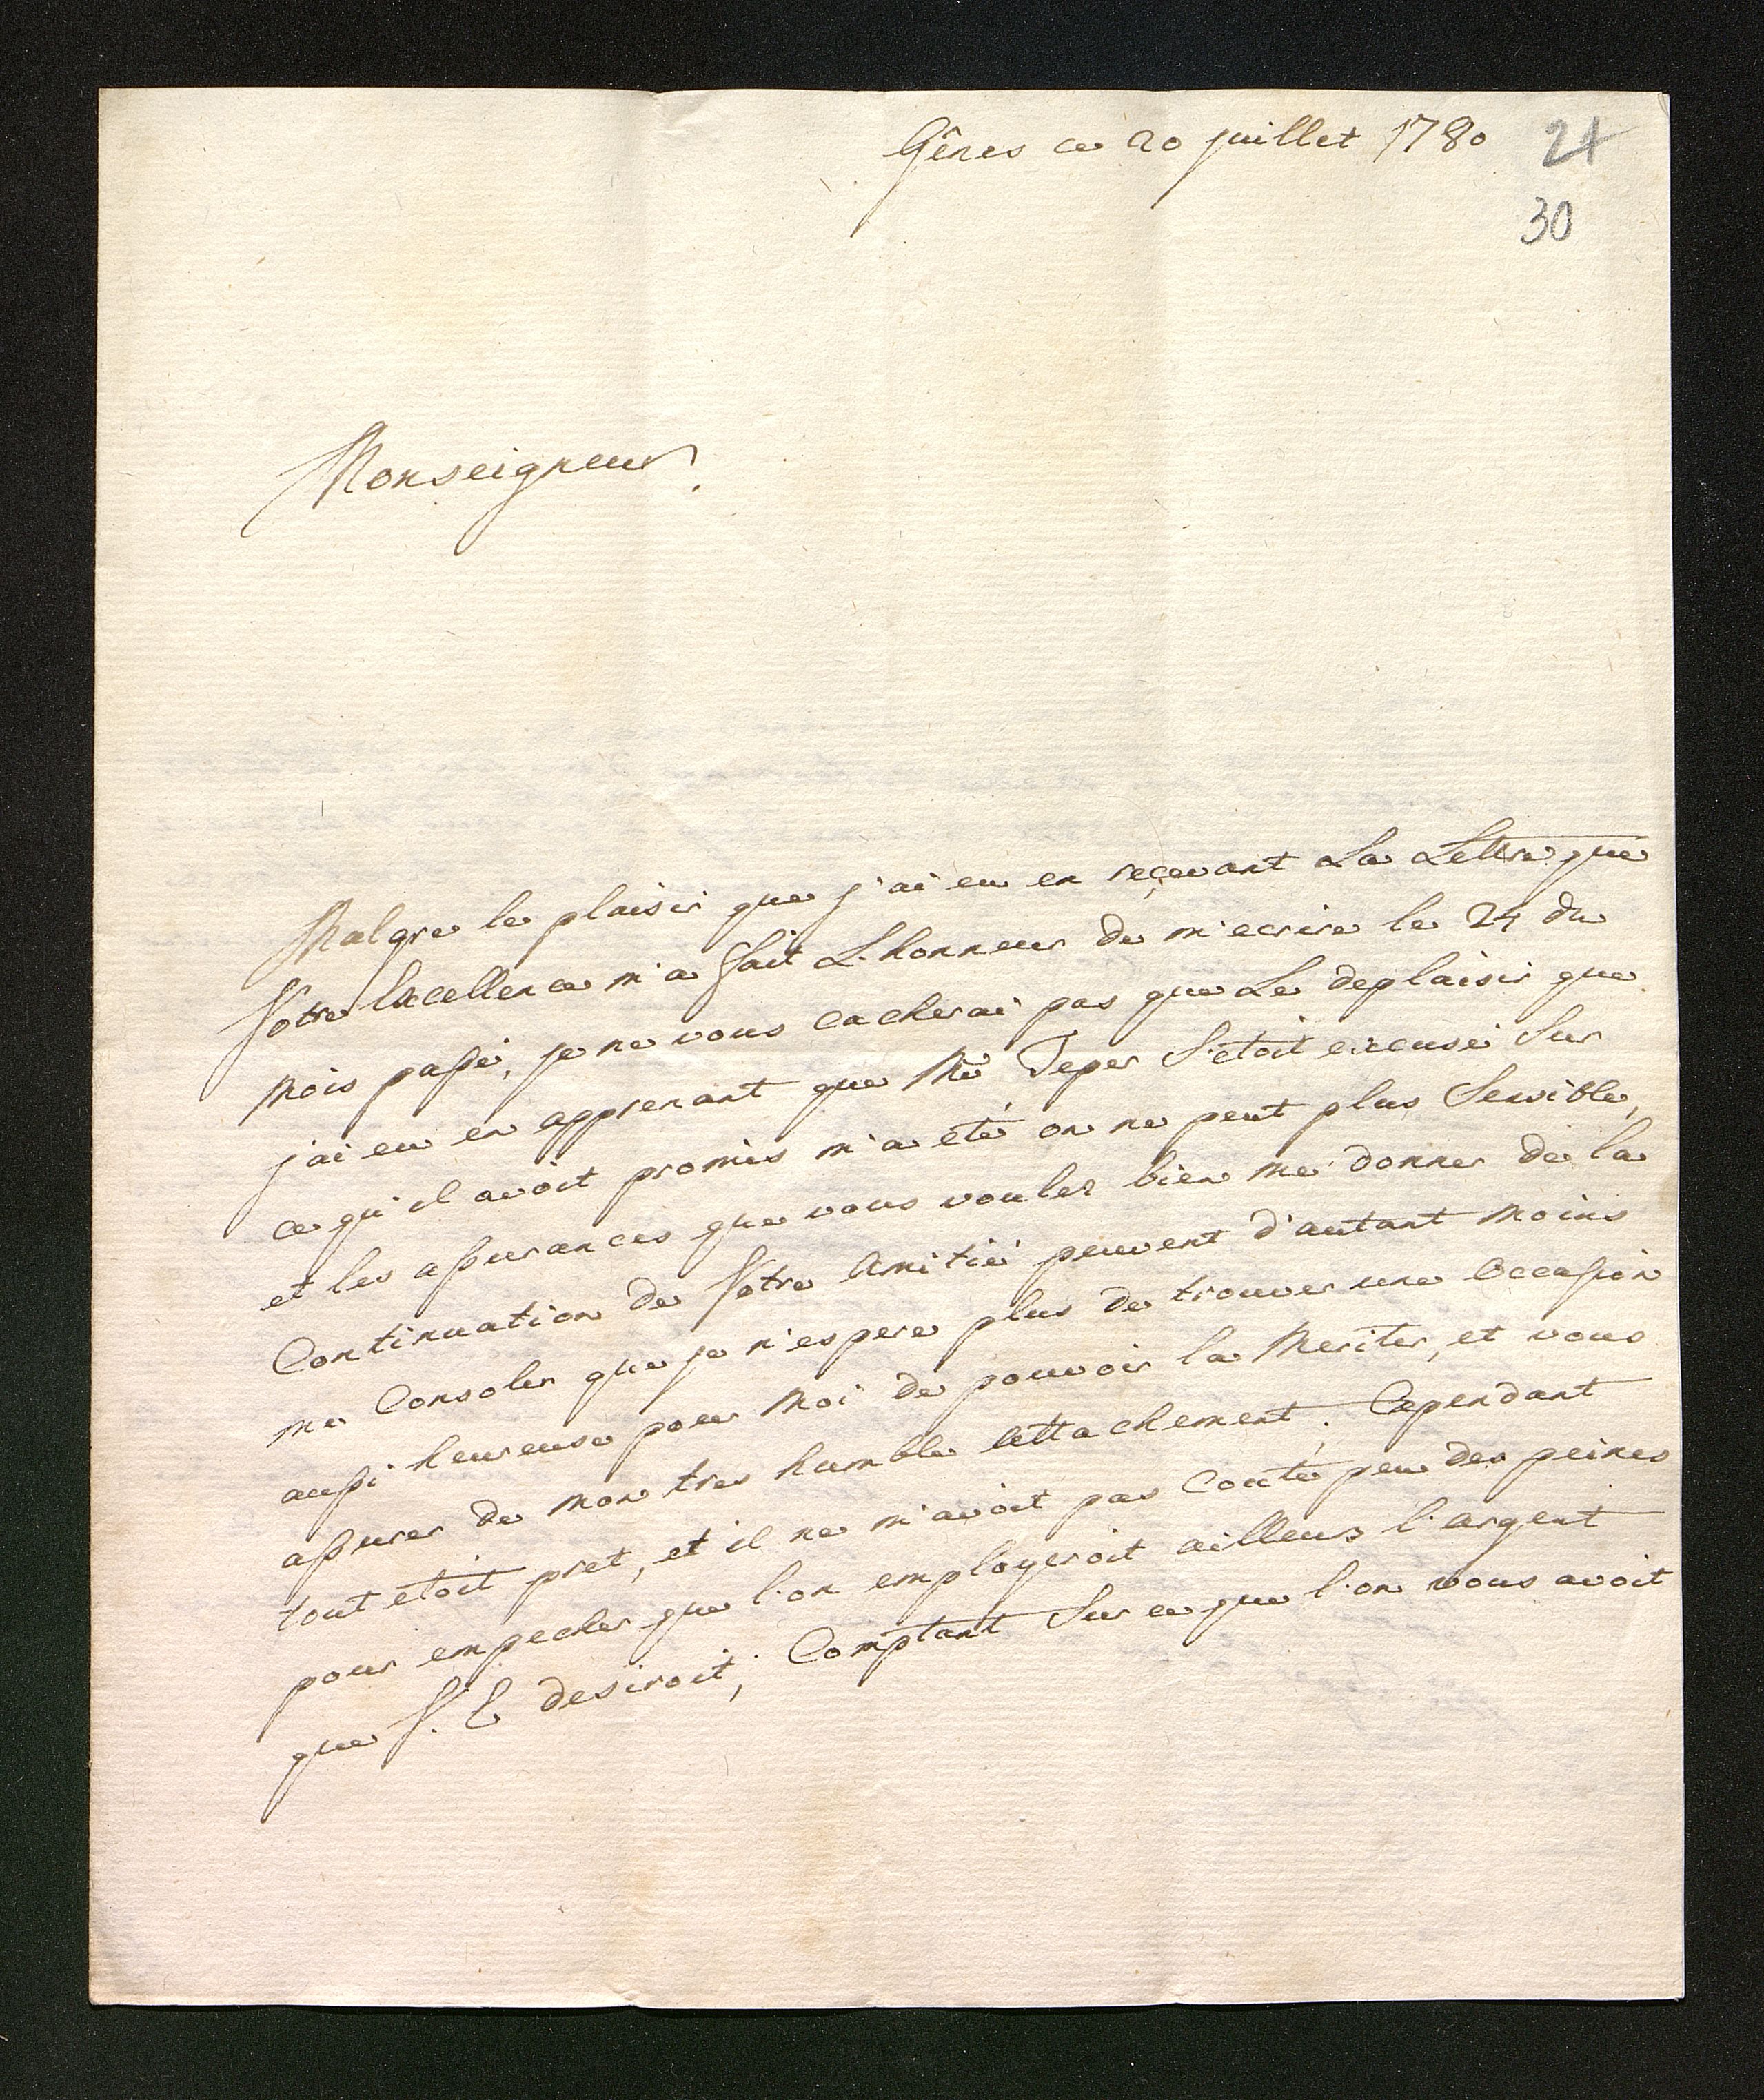 Gênes ce 20 juillet 1780 24
30
Monseigneur.
Malgre le plaisir que j'ai eu en reçevant La Lettre que
Votre Excellence m'a fait L'honneur de m'ecrire le 24 du
Mois passé, je ne vous cacherai pas que Le deplaisir que
j'ai eu en apprenant que Mr Teper S'etoit excusé Sur
ce qu'il avoit promis m'a eté on ne peut plus Sensible,
et les assurances que vous voulez bien me donner de la
Continuation de Votre Amitié peuvent d'autant Moins
me Consoler que je n'espere plus de trouver une Occasion
aussi heureuse pour Moi de pouvoir la Meriter, et vous
assurer de Mon tres humble Attachement; Cependant
tout etoit pret, et il ne m'avoit pas Couté peu des peines
pour empecher que l'on employeroit ailleurs l'argent
que V. E desiroit; Comptant Sur ce que l'on vous avoit